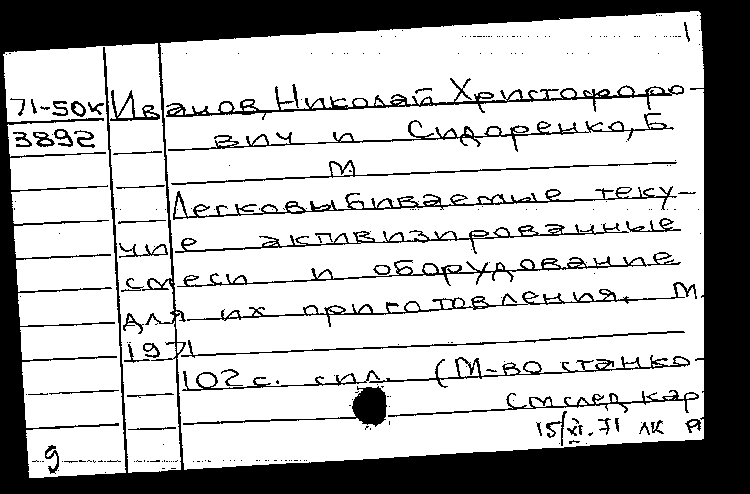 1
71-50к Иванов, Николай Христофоро-
3892 вич и Сидоренко, Б.
М
Легковыбиваемые теку-
чие активизированные
смеси и оборудование
для их приготовления. М.
1971
102 с. с ил. (М-во станко-
См след кар
15/XI.71 ЛК
9